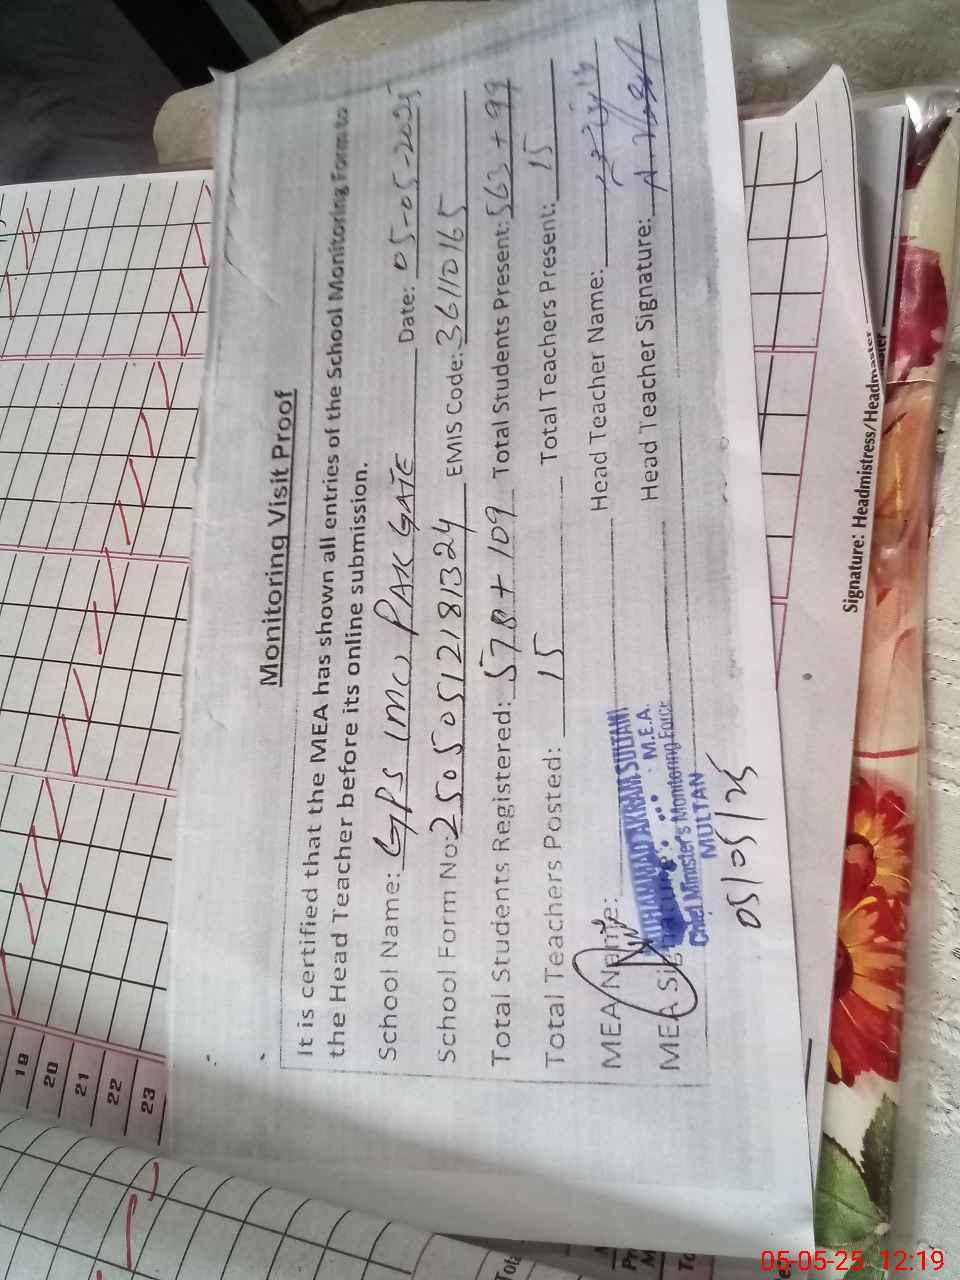 Monitoring Visit Proof
It is certified that the MEA has shown all entries of the School Monitoring Form to
the Head Teacher before its online submission.
School Name: GPS 1MCJ PAK GATE Date: 05-05-2025
School Form No: 25050512181324 EMIS Code: 36110165
Total Students Registered: 578 + 109 Total Students Present: 563 + 99
Total Teachers Posted: 15 Total Teachers Present: 15
MEA Name: Head Teacher Name:
MUHAMMAD AKRAM SULTANI
M.E.A.
MEA Head Teacher Signature:
Chief Minister's Monitoring Force
MULTAN
05/05/25
19
20
21
22
23
Signature: Headmistress/Headmaster
05-05-25 12:19